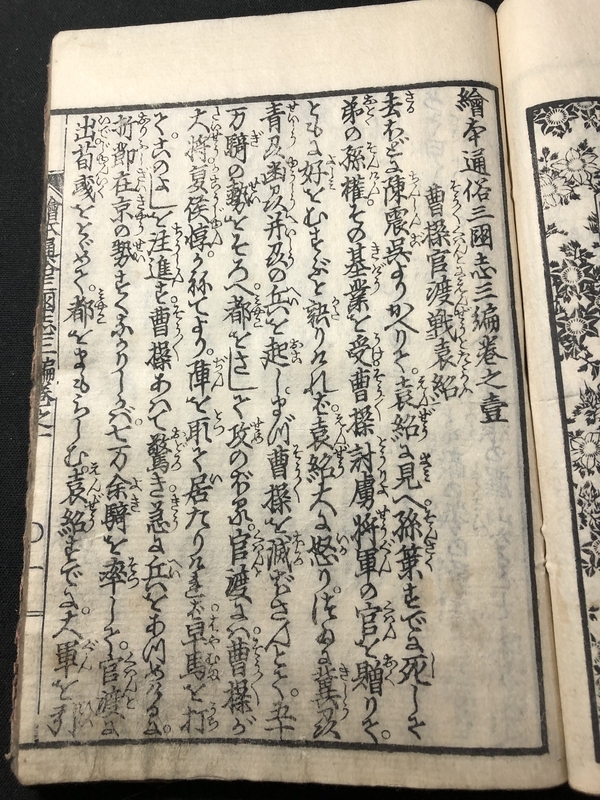 繪本通俗三國志三編卷之壹
曹操官渡戰袁紹
去ほどに陳震呉よりかへりて袁紹に見へ孫策すでに死して
弟の孫權その基業を受曹操討虜將軍の官を贈りて
ともに好をむすぶと語りければ袁紹大に怒りつひに冀州
青州幽州并州の兵を起しまづ曹操を滅ぼさんとて五十
万騎の勢をそろへ都をさして攻のぼる官渡には曹操が
大將夏侯惇かねてより陣を取て居たりければ早馬を打
てこのよしを注進す曹操あへて驚き急に兵をあつめけるに
折節在京の勢すくなかりしかば七万余騎を率して官渡に
出荀彧をとゞめて都をまもらしむ袁紹すでに大軍を
繪本通俗三國志三編卷之一